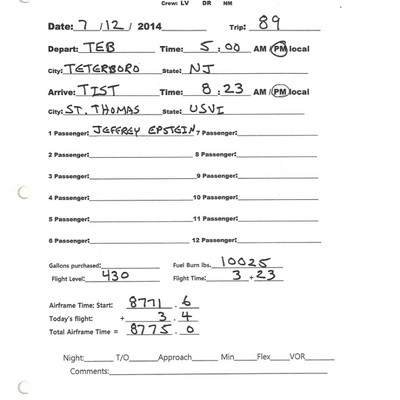 Crew: LV DR NM
Date: 7/12/2014 Trip: 89
Depart: TEB Time: 5:00 AM/PM local
City: TETERBORO State: NJ
Arrive: TIST Time: 8:23 AM/PM local
City: ST. THOMAS State: USVI
1 Passenger: JEFFREY EPSTEIN 7 Passenger:
2 Passenger: 8 Passenger:
3 Passenger: 9 Passenger:
4 Passenger: 10 Passenger:
5 Passenger: 11 Passenger:
6 Passenger: 12 Passenger:
Gallons purchased: Fuel Burn lbs. 10025
Flight Level: 430 Flight Time: 3+23
Airframe Time: Start: 8771.6
Today's flight: + 3.4
Total Airframe Time = 8775.0
Night: T/O Approach Min Flex VOR
Comments: